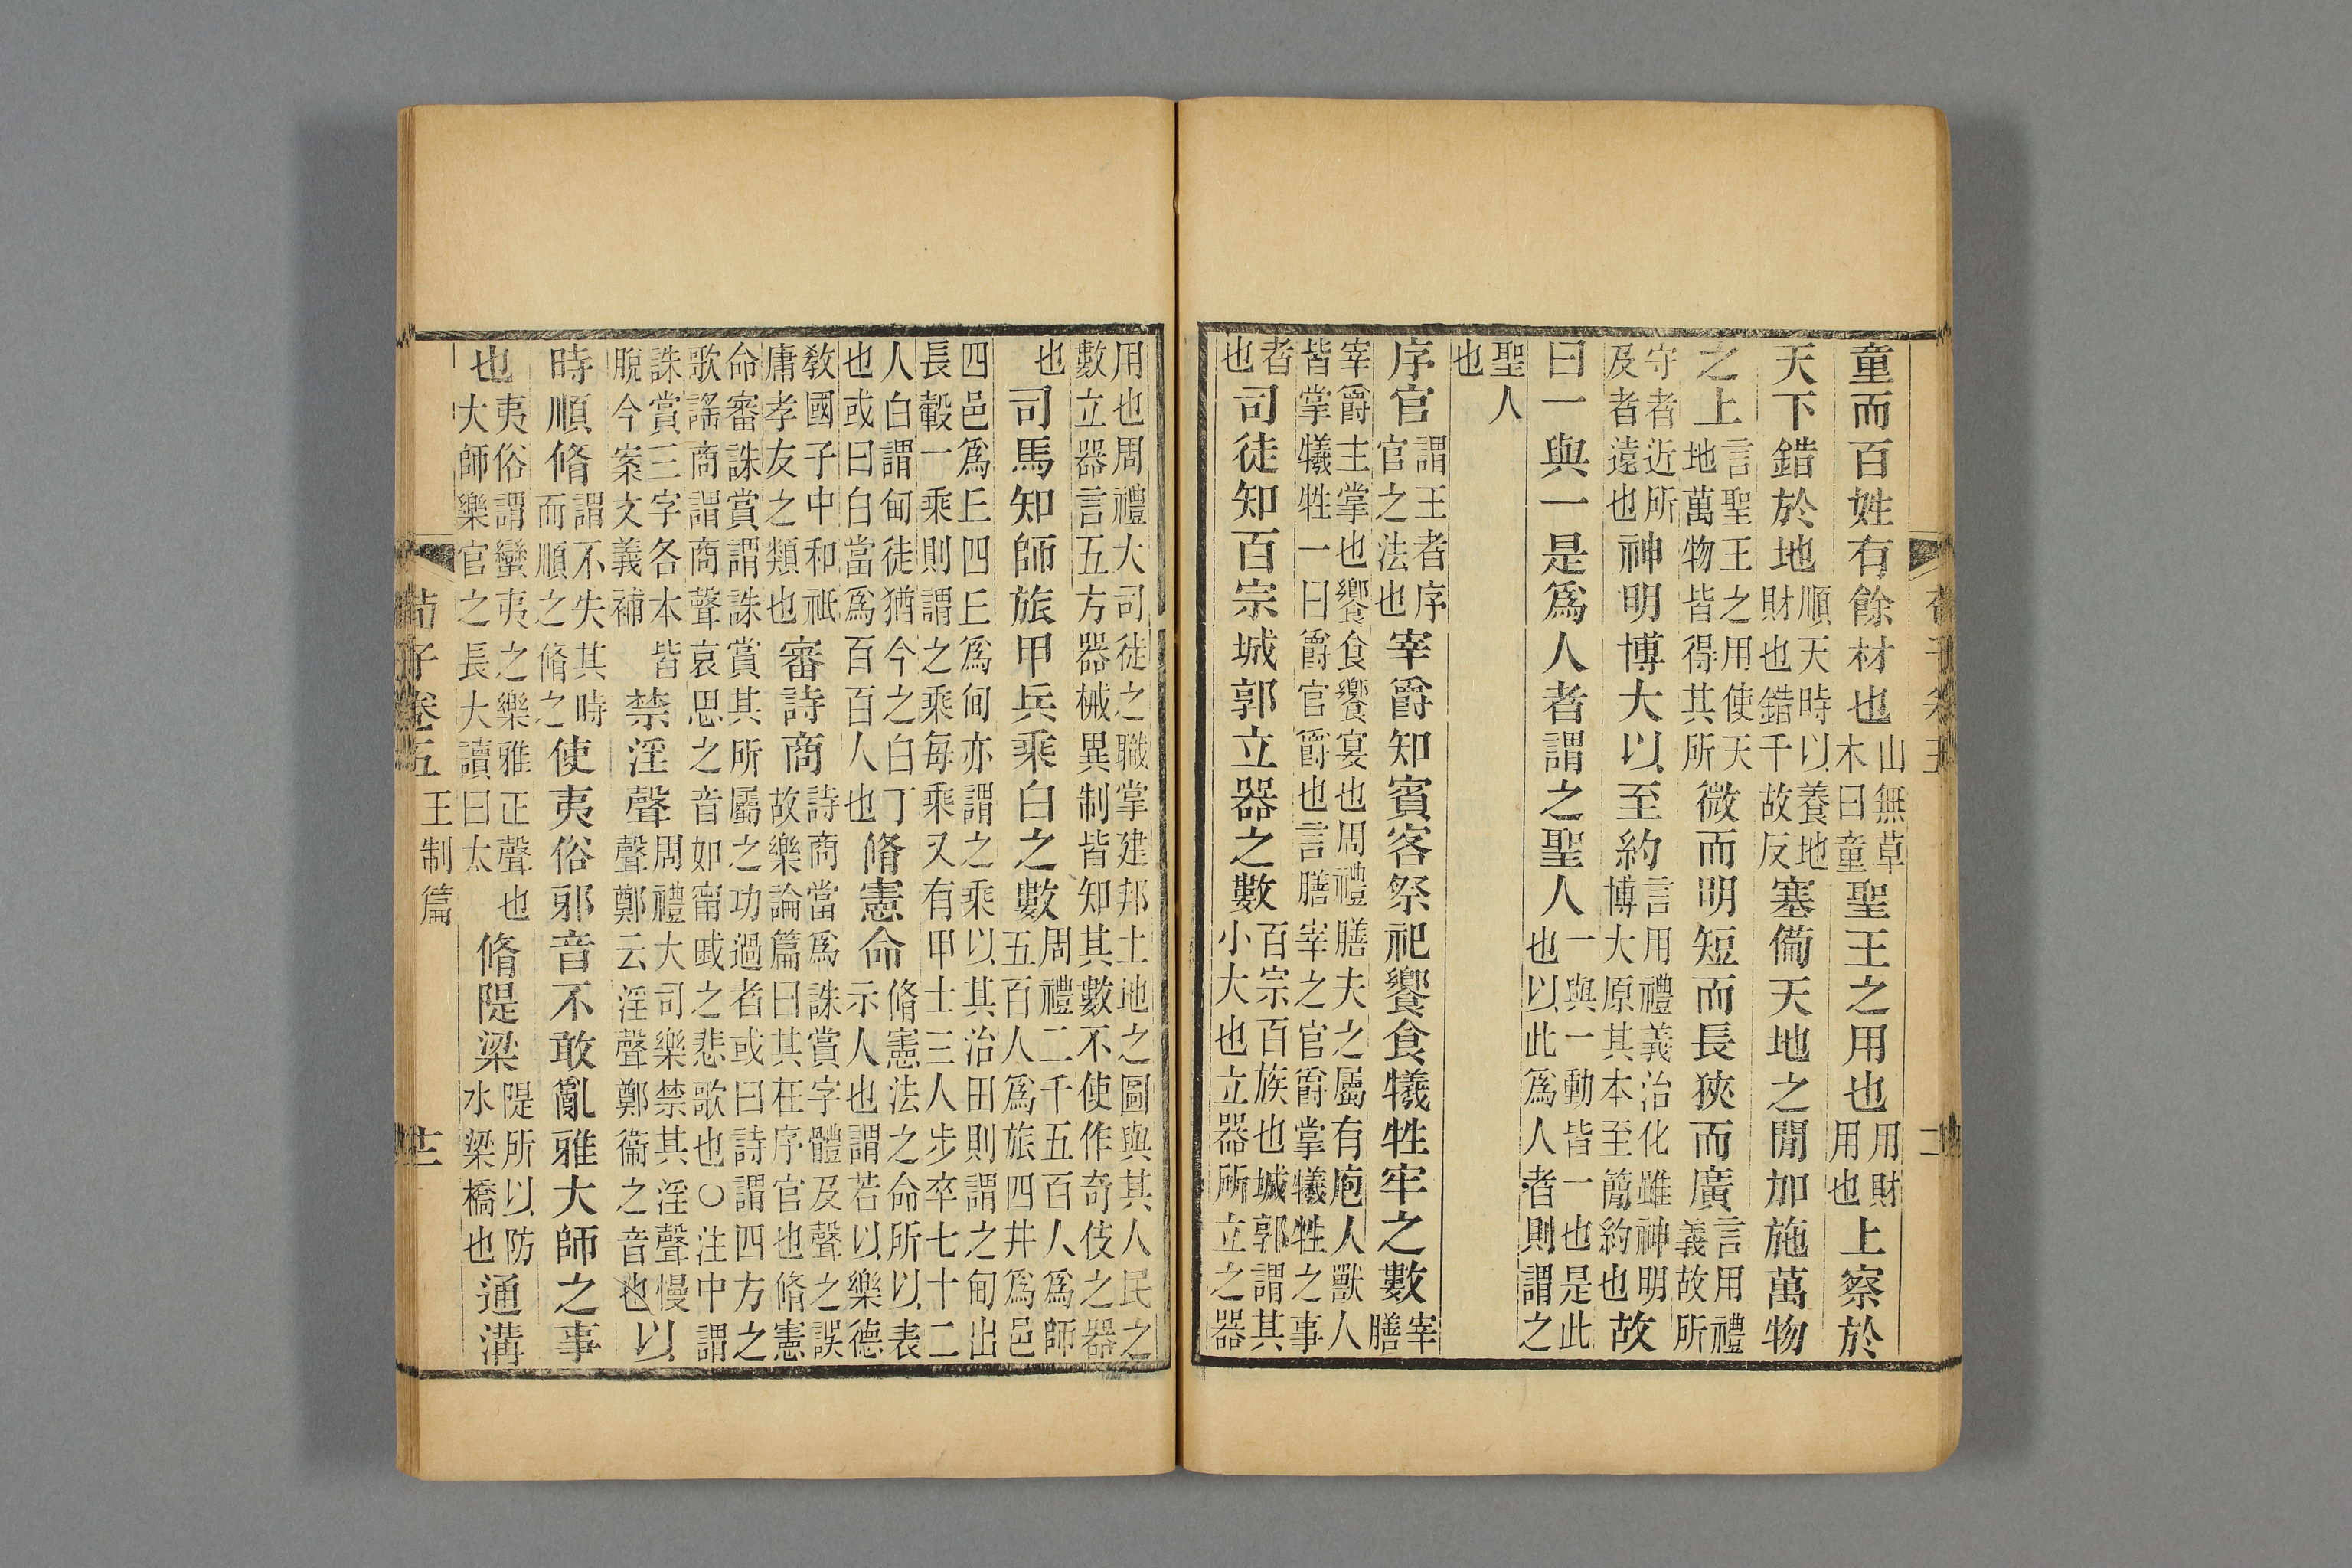 童而百姓有餘材也山無草木曰童聖王之用也用財用也上察於
天下錯於地順天時以養地財也錯千故反塞備天地之閒加施萬物
之上言聖王之用使天地萬物皆得其所微而明短而長狹而廣言用禮義故所
守者近所及者遠也神明博大以至約言用禮義治化雖神明博大原其本至簡約也故
曰一與一是爲人者謂之聖人一與一動皆一也是此也以此爲人者則謂之
聖人也
序官謂王者序官之法也宰爵知賓客祭祀饗食犧牲牢之數宰膳
宰爵主掌也饗食饗宴也周禮膳夫之屬有庖人獸人
皆掌犧牲一曰爵官爵也言膳宰之官爵掌犧牲之事
者也司徒知百宗城郭立器之數百宗百族也城郭謂其小大也立器所立之器
用也周禮大司徒之職掌建邦土地之圖與其人民之
數立器言五方器械異制皆知其數不使作奇伎之器
也司馬知師旅甲兵乘白之數周禮二千五百人爲師五百人爲旅四井爲邑
四邑爲丘四丘爲甸亦謂之乘以其治田則謂之甸出
長轂一乘則謂之乘每乘又有甲士三人步卒七十二
人白謂甸徒猶今之白丁也或曰白當爲百百人也脩憲命脩憲法之命所以表示人也謂若以樂德
教國子中和祇庸孝友之類也審詩商詩商當爲誅賞字體及聲之誤故樂論篇曰其在序官也脩憲
命審誅賞謂誅賞其所屬之功過者或曰詩謂四方之
歌謠商謂商聲哀思之音如甯戚之悲歌也○注中謂
誅賞三字各本皆脫今案文義補禁淫聲周禮大司樂禁其淫聲慢聲鄭云淫聲鄭衞之音也以
時順脩謂不失其時而順之脩之使夷俗邪音不敢亂雅大師之事
也夷俗謂蠻夷之樂雅正聲也大師樂官之長大讀曰太脩隄梁隄所以防水梁橋也通溝
荀子卷五 王制篇 十二